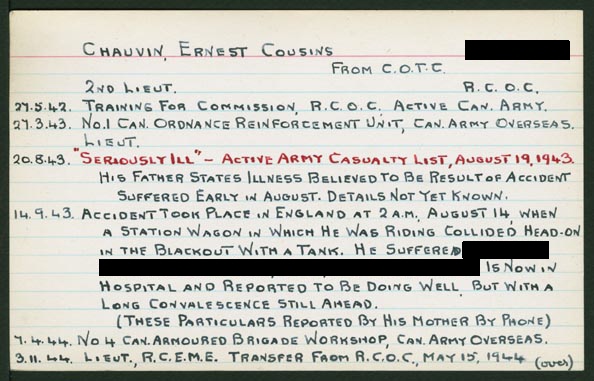 CHAUVIN, ERNEST COUSINS
FROM C.O.T.C.
2ND LIEUT. R.C.O.C.
27.5.42. TRAINING FOR COMMISSION, R.C.O.C. ACTIVE CAN. ARMY.
27.3.43. NO.1 CAN. ORDNANCE REINFORCEMENT UNIT, CAN. ARMY OVERSEAS.
LIEUT.
20.8.43. "SERIOUSLY ILL" – ACTIVE ARMY CASUALTY LIST, AUGUST 19, 1943.
HIS FATHER STATES ILLNESS BELIEVED TO BE RESULT OF ACCIDENT
SUFFERED EARLY IN AUGUST. DETAILS NOT YET KNOWN.
14.9.43. ACCIDENT TOOK PLACE IN ENGLAND AT 2 A.M. AUGUST 14, WHEN
A STATION WAGON IN WHICH HE WAS RIDING COLLIDED HEAD-ON
IN THE BLACKOUT WITH A TANK. HE SUFFERED
IS NOW IN
HOSPITAL AND REPORTED TO BE DOING WELL, BUT WITH A
LONG CONVALESCENCE STILL AHEAD.
(THESE PARTICULARS REPORTED BY HIS MOTHER BY PHONE)
7.4.44. NO 4 CAN. ARMOURED BRIGADE WORKSHOP, CAN. ARMY OVERSEAS.
3.11.44. LIEUT., R.C.E.M.E. TRANSFER FROM R.C.O.C., MAY 15, 1944 (over)